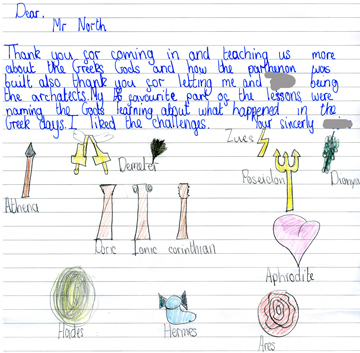 Dear.
Mr North
Thank you for coming in and teaching us more
about the Greeks Gods and how the parthunon was
built also thank you for letting me and being
the architects. My favourite part of the lessons were
naming the Gods learning about what happened in the
Greek days. I liked the challenges. Your sincerly
Zues
Demeter
Poseidon
Athena
Doric Ionic corinthian
Aphrodite
Hades
Hermes
Ares